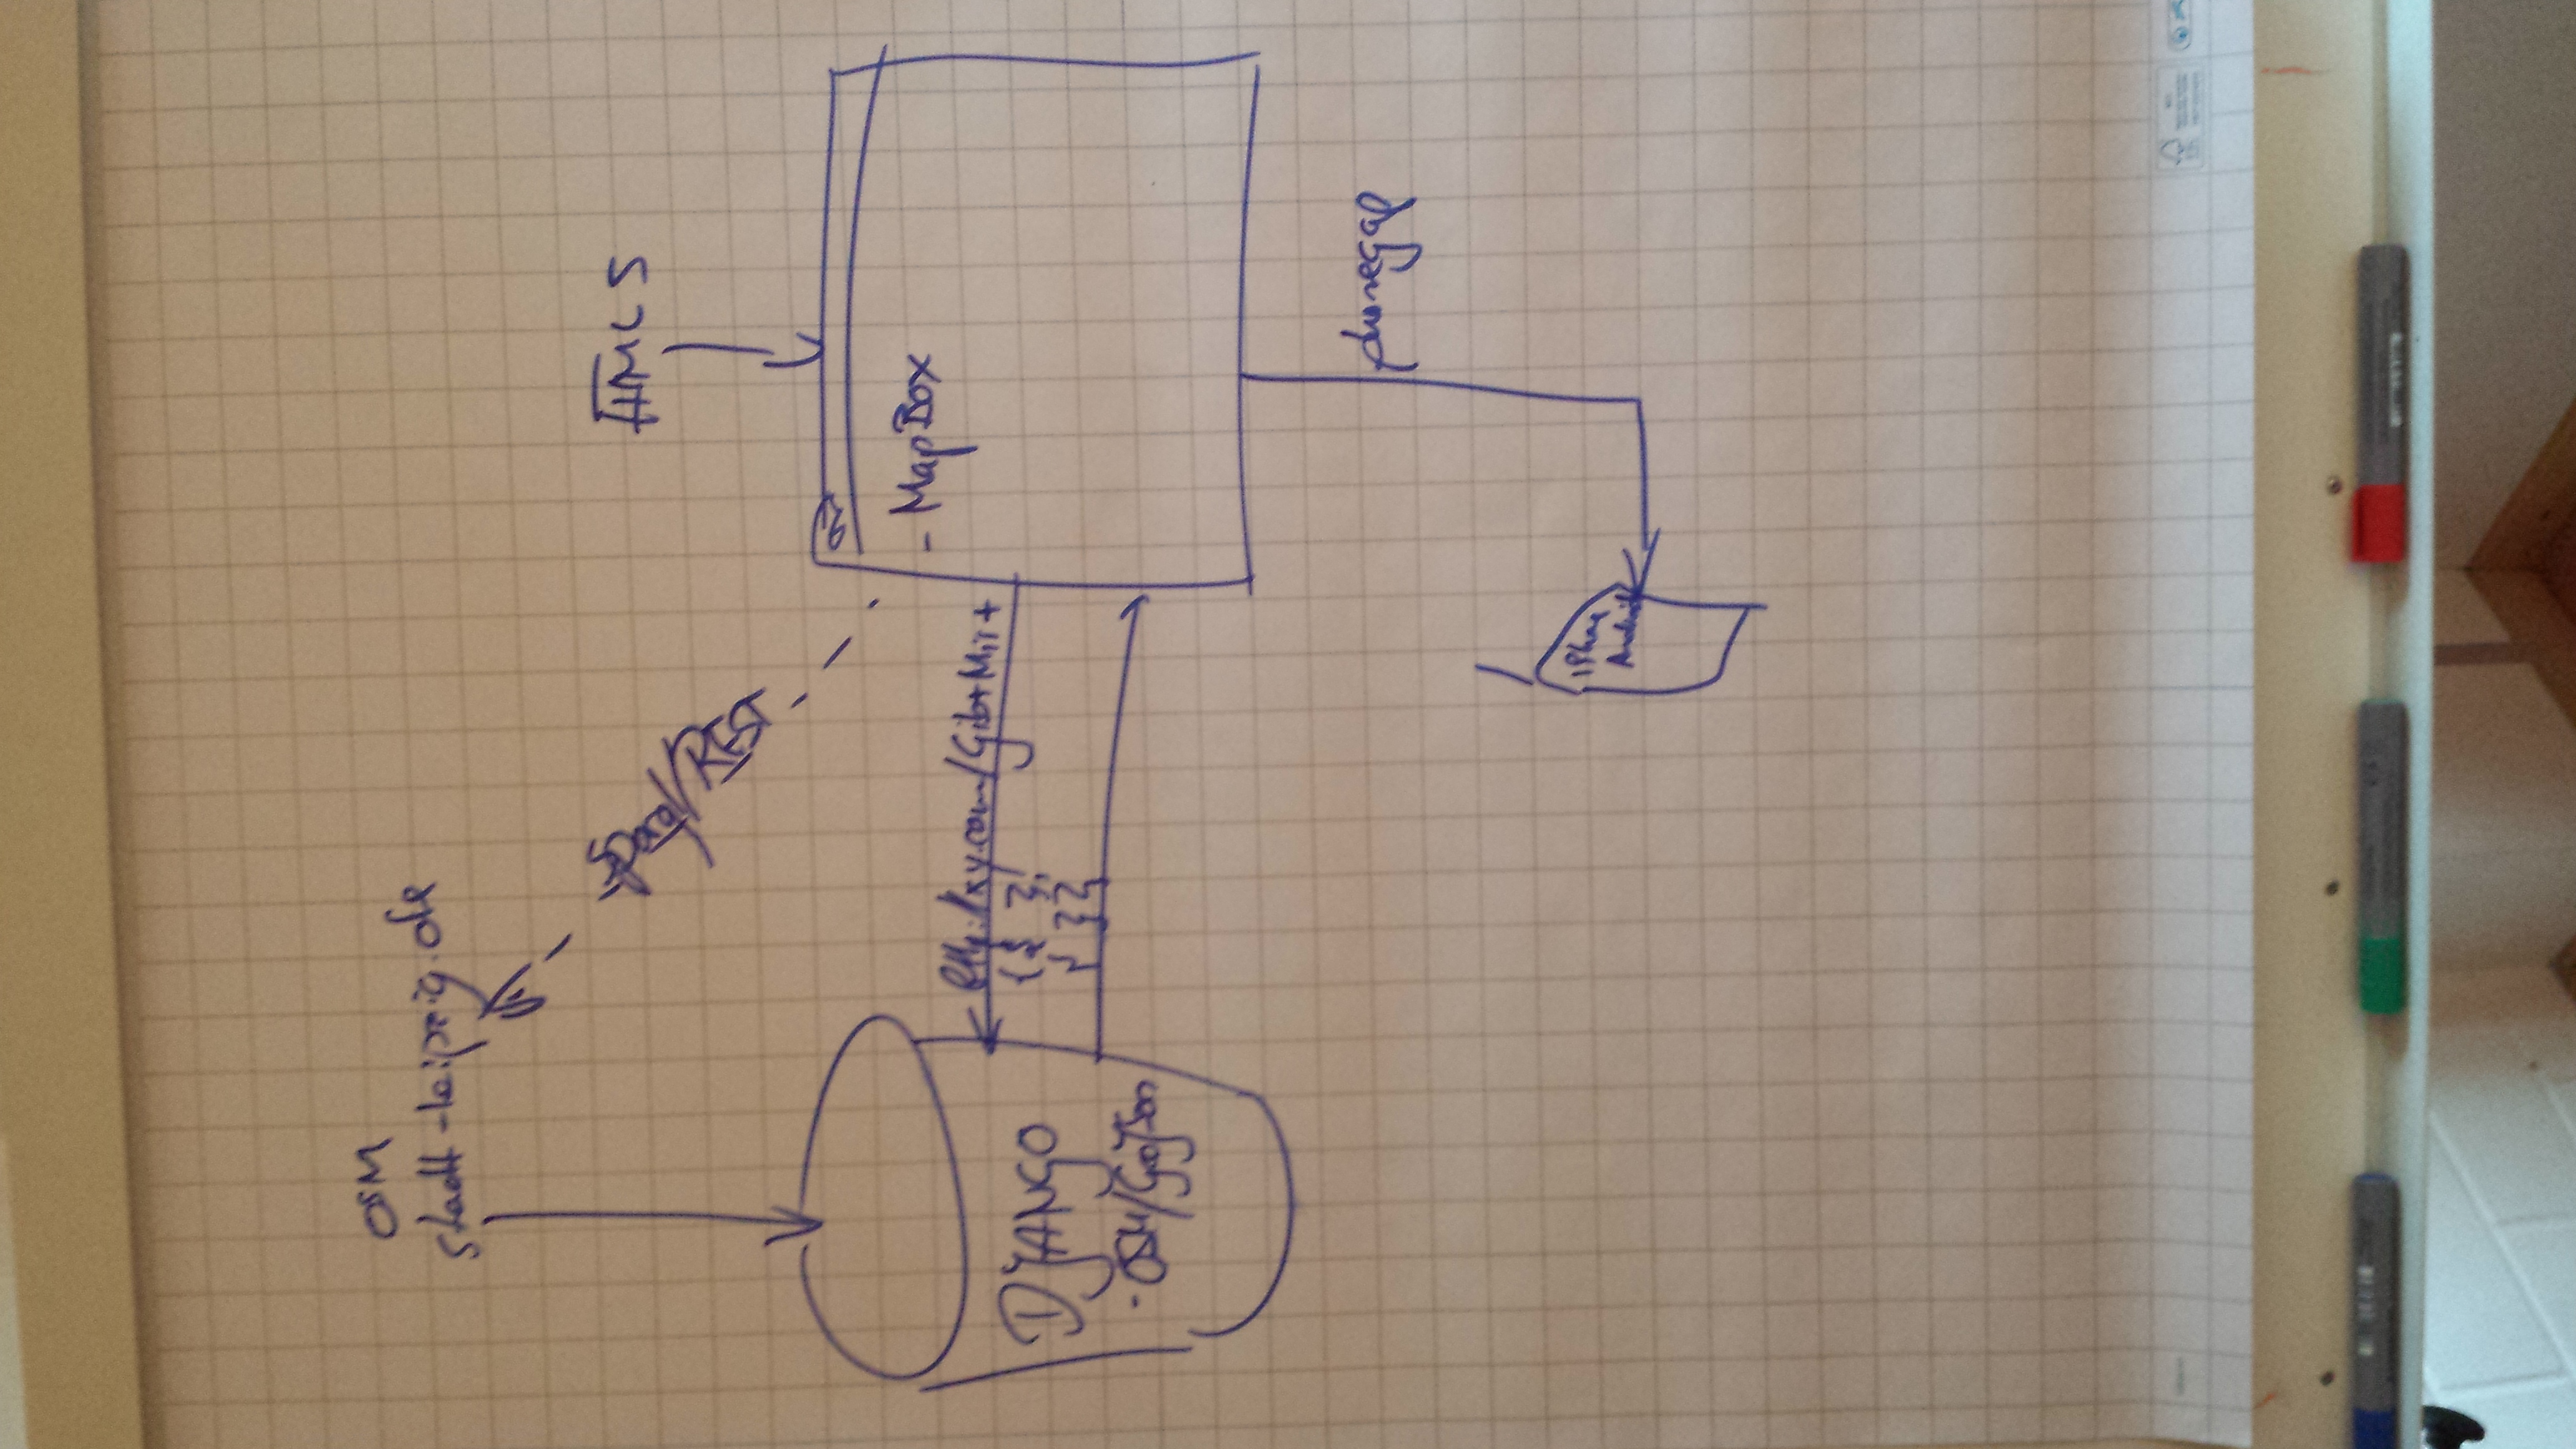 OSM
stadt-leipzig.de
HTML5
/REST
- MapBox
http://xy.com/Gib+Mir+
{{ },
{ }}
DJANGO
- OSM/GeoJson
phonegap
iPhone
Android